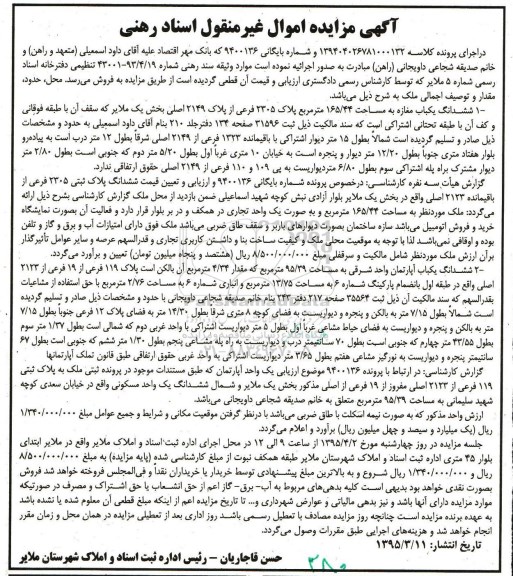 آگهی مزایده اموال غیرمنقول اسناد رهنی
دراجرای پرونده کلاسه ۱۳۹۴۰۴۰۲۶۷۸۱۰۰۰۱۳۲ و شماره بایگانی ۹۴۰۰۱۳۶ که بانک مهر اقتصاد علیه آقای داود اسمعیلی (متعهد و راهن) و
خانم صدیقه شجاعی داویجانی (راهن) مبادرت به صدور اجرائیه نموده است موارد وثیقه سند رهنی شماره ۹۳/۴/۱۹-۴۳۰۰۱ تنظیمی دفترخانه اسناد
رسمی شماره ۵ ملایر که توسط کارشناس رسمی دادگستری ارزیابی و قیمت آن قطعی گردیده است از طریق مزایده به فروش می‌رسد. محل، حدود،
مقدار و توصیف اجمالی ملک به شرح ذیل می‌باشد.
۱- ششدانگ یکباب مغازه به مساحت ۱۶۵/۴۴ مترمربع پلاک ۲۳۰۵ فرعی از پلاک ۲۱۴۹ اصلی بخش یک ملایر که سقف آن با طبقه فوقانی
و کف آن با طبقه تحتانی اشتراکی است که سند مالکیت ذیل ثبت ۳۱۵۹۶ صفحه ۱۳۴ دفترجلد ۲۱۰ بنام آقای داود اسمعیلی به حدود و مشخصات
ذیل صادر و تسلیم گردیده است شمالاً بطول ۱۵ متر دیوار اشتراکی با باقیمانده ۱۳۲۳ فرعی از ۲۱۴۹ اصلی شرقاً بطول ۱۲ متر درب است به پیاده‌رو
بلوار هفتاد متری جنوباً بطول ۱۲/۲۰ متر دیوار و پنجره است به خیابان ۱۰ متری غرباً اول بطول ۵/۲۰ متر دوم که جنوبی است بطول ۲/۸۰ متر
دیوار مشترک براه پله اشتراکی سوم بطول ۶/۸۰ متردیواریست به پی ۱۰۹ و ۱۱۰ فرعی از ۲۱۴۹ اصلی حقوق ارتفاقی ندارد.
گزارش هیأت سه نفره کارشناسی: درخصوص پرونده شماره بایگانی ۹۴۰۰۱۳۶ و ارزیابی و تعیین قیمت ششدانگ پلاک ثبتی ۲۳۰۵ فرعی از
باقیمانده ۲۱۲۳ اصلی واقع در بخش یک ملایر بلوار آزادی نبش کوچه شهید اسماعیلی ضمن بازدید از محل ملک گزارش کارشناسی بشرح ذیل ارائه
می‌گردد: ملک موردنظر به مساحت ۱۶۵/۴۴ مترمربع و به صورت یک واحد تجاری در همکف و در بر بلوار قرار دارد و فعالیت آن بصورت نمایشگاه
خرید و فروش اتومبیل می‌باشد سازه ساختمان بصورت دیوارهای باربر و سقف طاق ضربی می‌باشد ملک فوق دارای امتیازات آب و برق و گاز و تلفن
بوده و اوقافی نمی‌باشد لذا با توجه به موقعیت محل، ابعاد و کیفیت ساخت بنا و داشتن کاربری تجاری و قدرالسهم عرصه و سایر عوامل تأثیرگذار
برآن ارزش ملک موردنظر شامل مالکیت و سرقفلی مبلغ ۸/۵۰۰/۰۰۰/۰۰۰ ریال (هشتصد و پنجاه میلیون تومان) تعیین و برآورد می‌گردد.
۲- ششدانگ یکباب آپارتمان واحد شرقی به مساحت ۹۵/۳۹ مترمربع که مقدار ۴/۳۴ مترمربع آن بالکن است پلاک ۱۱۹ فرعی از ۱۹ فرعی از ۲۱۲۳
اصلی واقع در طبقه اول بانضمام پارکینگ شماره ۶ به مساحت ۱۳/۷۵ مترمربع و انباری شماره ۶ به مساحت ۲/۷۶ مترمربع با حق استفاده از مشاعیات
بقدرالسهم که سند مالکیت آن ذیل ثبت ۳۵۵۶۴ صفحه ۱۷ دفتر ۲۳۴ بنام خانم صدیقه شجاعی داویجانی با حدود و مشخصات ذیل صادر و تسلیم گردیده
است شمالاً بطول ۷/۱۵ متر به بالکن و پنجره و دیواریست به فضای کوچه ۸ متری شرقاً بطول ۱۴/۳۰ متر به فضای پلاک ۱۲ فرعی جنوباً بطول ۷/۱۵
متر به بالکن و پنجره و دیواریست به فضای حیاط مشاعی غرباً اول بطول ۵ متر دیواریست اشتراکی با واحد غربی دوم که شمالی است بطول ۱/۳۷ متر سوم
بطول ۴۳/۵۵ متر چهارم که جنوبی است بطول ۷۰ سانتیمتر درب و دیواریست به راه پله مشاعی پنجم بطول ۱/۳۰ متر ششم که جنوبی است بطول ۶۷
سانتیمتر پنجره و دیواریست به نورگیر مشاعی هفتم بطول ۳/۶۵ متر دیواریست اشتراکی با واحد غربی حقوق ارتفاقی طبق قانون تملک آپارتمانها
گزارش کارشناسی: در ارتباط با پرونده ۹۴۰۰۱۳۶ موضوع ارزیابی یک واحد آپارتمان که طبق مستندات موجود در پرونده ثبتی ملک به پلاک ثبتی
۱۱۹ فرعی از ۲۱۲۳ اصلی مفروز از ۱۹ فرعی از اصلی مذکور بخش یک ملایر و شمال ششدانگ یک واحد مسکونی واقع در خیابان سعدی کوچه
شهید سلیمانی به مساحت ۹۵/۳۹ مترمربع متعلق به خانم صدیقه شجاعی داویجانی می‌باشد.
ارزش واحد مذکور که به صورت نیمه اسکلت با طاق ضربی می‌باشد با درنظر گرفتن موقعیت مکانی و شرایط و جمیع عوامل مبلغ ۱/۳۴۰/۰۰۰/۰۰۰
ریال (یک میلیارد و سیصد و چهل میلیون ریال) برآورد و اعلام می‌گردد.
جلسه مزایده در روز چهارشنبه مورخ ۱۳۹۵/۴/۲ از ساعت ۹ الی ۱۲ در محل اجرای اداره ثبت اسناد و املاک ملایر واقع در ملایر ابتدای
بلوار ۴۵ متری اداره ثبت اسناد و املاک شهرستان ملایر طبقه همکف نبوت از مبلغ کارشناسی شده (پایه مزایده) به مبلغ ۸/۵۰۰/۰۰۰/۰۰۰
ریال و ۱/۳۴۰/۰۰۰/۰۰۰ ریال شروع و به بالاترین مبلغ پیشنهادی توسط خریدار یا خریداران نقداً و فی‌المجلس فروخته خواهد شد فروش
بصورت نقدی خواهد بود بدیهی است کلیه بدهی‌های مربوط به آب- برق- گاز اعم از حق انشعاب یا حق اشتراک و مصرف در صورتیکه
موارد مزایده دارای آنها باشد و نیز بدهی مالیاتی و عوارض شهرداری و... تا تاریخ مزایده اعم از اینکه مبلغ قطعی آن معلوم شده یا نشده باشد
به عهده برنده مزایده است چنانچه روز مزایده مصادف با تعطیل رسمی باشد روز اداری بعد از تعطیلی مزایده در همان محل و زمان مقرر
انجام خواهد شد و هزینه‌های اجرایی طبق مقررات وصول می‌گردد.
تاریخ انتشار: ۱۳۹۵/۳/۱۱
حسن قاجاریان – رئیس اداره ثبت اسناد و املاک شهرستان ملایر